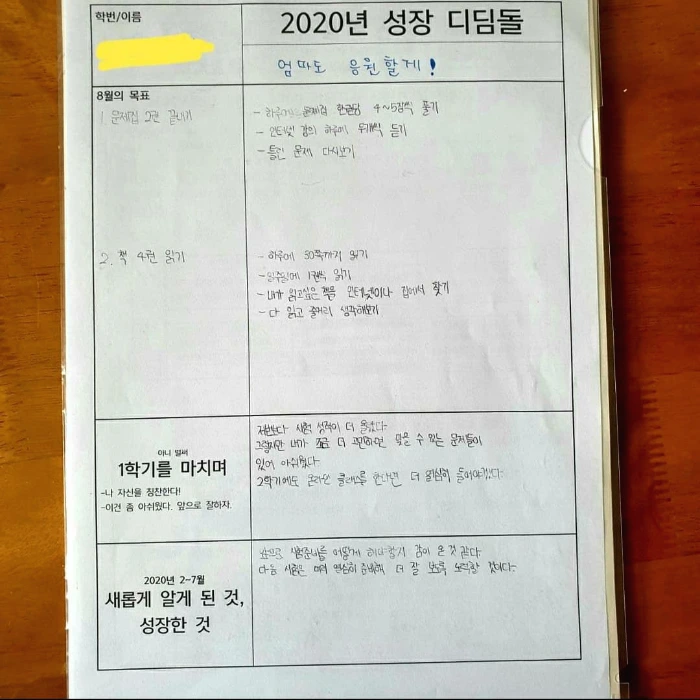 학번/이름
2020년 성장 디딤돌
엄마도 응원할게!
8월의 목표
1. 문제집 2권 끝내기
- 하루에 문제집 한권당 4~5장씩 풀기
- 인터넷 강의 하루에 두개씩 듣기
- 틀린 문제 다시보기
2. 책 4권 읽기
- 하루에 50쪽까지 읽기
- 일주일에 1권씩 읽기
- 내가 읽고싶은 책을 인터넷이나 집에서 찾기
- 다 읽고 줄거리 생각해보기
아니 벌써
1학기를 마치며
-나 자신을 칭찬한다!
-이건 좀 아쉬웠다. 앞으로 잘하자.
저번보다 시험 성적이 더 올랐다.
그렇지만 내가 조금 더 꼼꼼하면 맞을 수 있는 문제들이
있어 아쉬웠다.
2학기에도 온라인 클래스를 한다면 더 열심히 들어야겠다.
2020년 2~7월
새롭게 알게 된 것,
성장한 것
앞으로 시험준비를 어떻게 해야할지 감이 온 것 같다.
다음 시험은 미리 열심히 준비해 더 잘 보도록 노력할 것이다.